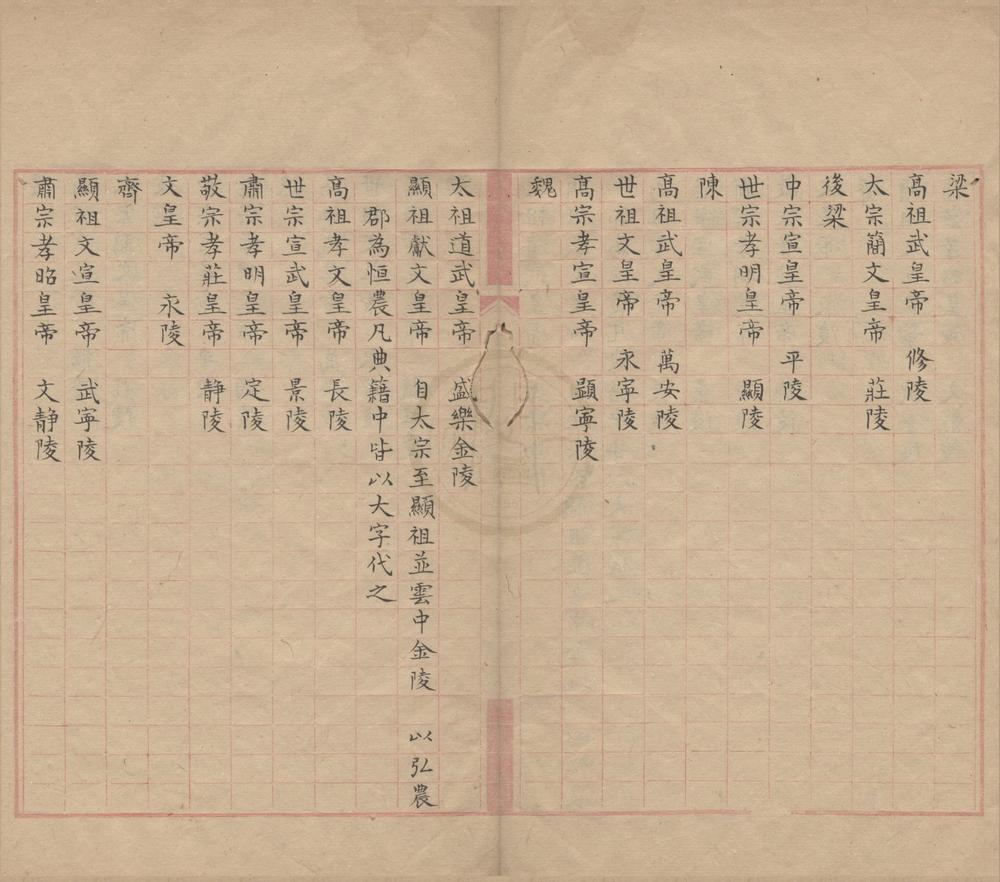 梁
高祖武皇帝　修陵
太宗簡文皇帝　莊陵
後梁
中宗宣皇帝　平陵
世宗孝明皇帝　顯陵
陳
高祖武皇帝　萬安陵
世祖文皇帝　永寧陵
高宗孝宣皇帝　顯寧陵
魏
太祖道武皇帝　盛樂金陵
顯祖獻文皇帝　自太宗至顯祖並雲中金陵　以弘農
郡為恒農凡典籍中皆以大字代之
高祖孝文皇帝　長陵
世宗宣武皇帝　景陵
肅宗孝明皇帝　定陵
敬宗孝莊皇帝　靜陵
文皇帝　永陵
齊
顯祖文宣皇帝　武寧陵
肅宗孝昭皇帝　文靜陵